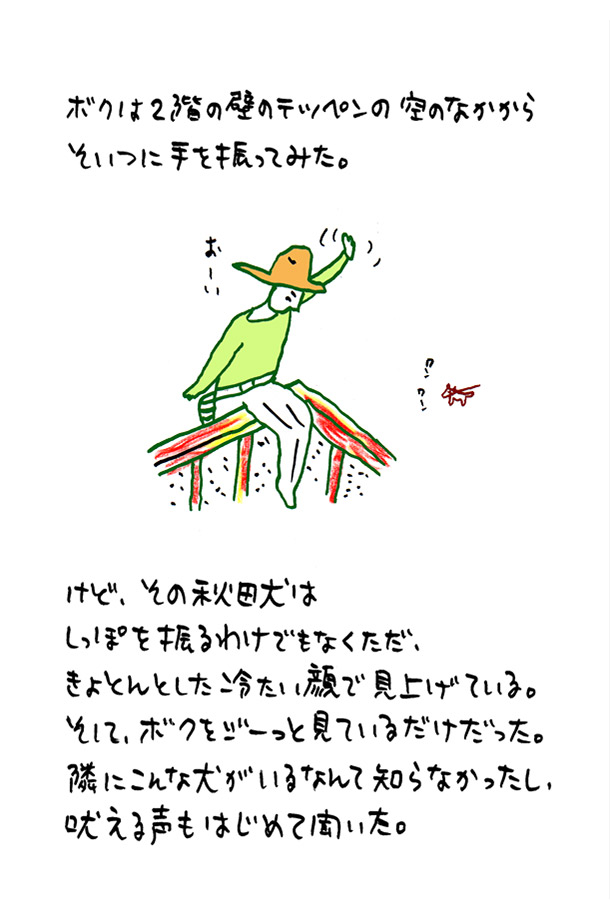 ボクは2階の壁のテッペンの空のなかから
そいつに手を振ってみた。
おーい
ワン
ワーン
けど、その秋田犬は
しっぽを振るわけでもなくただ、
きょとんとした冷たい顔で見上げている。
そして、ボクをジーっと見ているだけだった。
隣にこんな犬がいるなんて知らなかったし、
吠える声もはじめて聞いた。